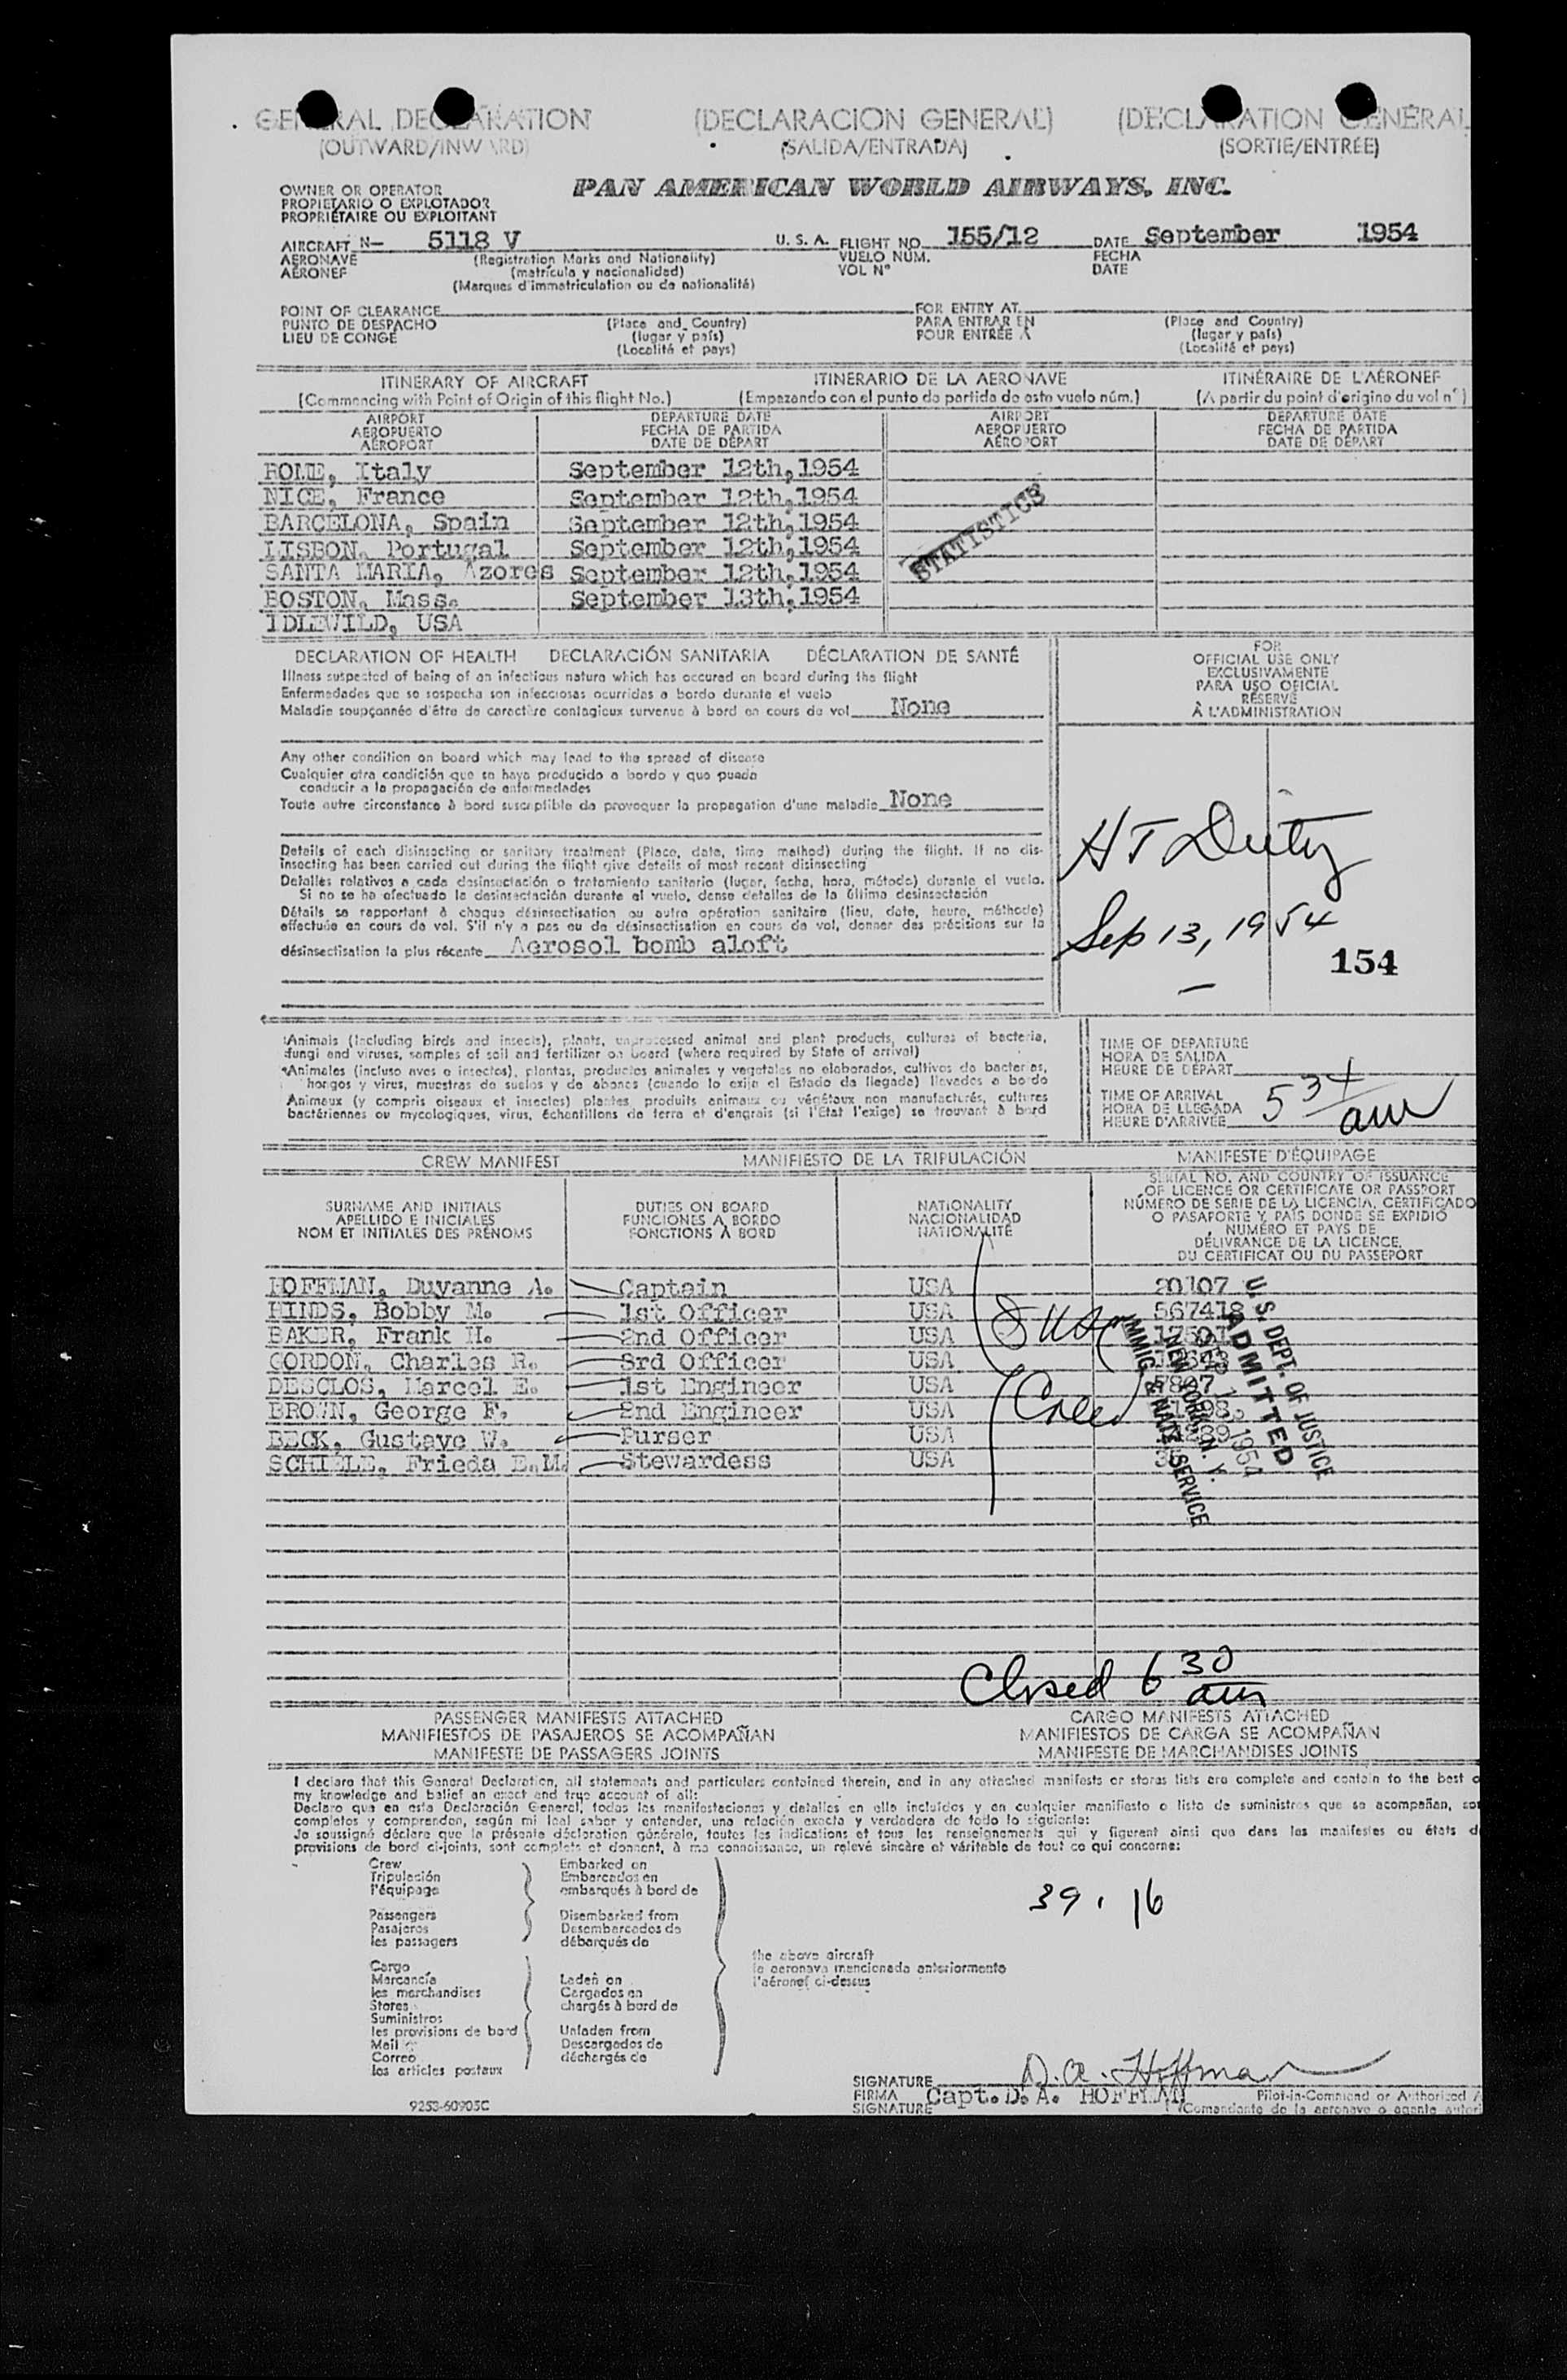 GENERAL DECLARATION (DECLARACION GENERAL) (DÉCLARATION GÉNÉRAL
(OUTWARD/INWARD) (SALIDA/ENTRADA) (SORTIE/ENTRÉE)
PAN AMERICAN WORLD AIRWAYS, INC.
OWNER OR OPERATOR
PROPIETARIO O EXPLOTADOR
PROPRIÉTAIRE OU EXPLOITANT
AIRCRAFT N- 5118 V U. S. A. FLIGHT NO. 155/12 DATE September 1954
AERONAVE (Registration Marks and Nationality) VUELO NÚM. FECHA
AÉRONEF (matrícula y nacionalidad) VOL N° DATE
(Marques d'immatriculation ou de nationalité)
POINT OF CLEARANCE FOR ENTRY AT
PUNTO DE DESPACHO (Place and Country) PARA ENTRAR EN (Place and Country)
LIEU DE CONGÉ (lugar y país) POUR ENTRÉE À (lugar y país)
(Localité et pays) (Localité et pays)
ITINERARY OF AIRCRAFT ITINERARIO DE LA AERONAVE ITINÉRAIRE DE L'AÉRONEF
(Commencing with Point of Origin of this flight No.) (Empezando con el punto de partida de este vuelo núm.) (A partir du point d'origine du vol n°)
AIRPORT DEPARTURE DATE AIRPORT DEPARTURE DATE
AEROPUERTO FECHA DE PARTIDA AEROPUERTO FECHA DE PARTIDA
AÉROPORT DATE DE DÉPART AÉROPORT DATE DE DÉPART
ROME, Italy September 12th,1954
NICE, France September 12th,1954
BARCELONA, Spain September 12th,1954
LISBON, Portugal September 12th,1954
SANTA MARIA, Azores September 12th,1954
BOSTON, Mass. September 13th,1954
IDLEWILD, USA
STATISTICS
DECLARATION OF HEALTH DECLARACIÓN SANITARIA DÉCLARATION DE SANTÉ
Illness suspected of being of an infectious nature which has occured on board during the flight
Enfermedades que se sospecha son infecciosas ocurridas a bordo durante el vuelo
Maladie soupçonnée d'être de caractère contagieux survenue à bord en cours de vol None
FOR
OFFICIAL USE ONLY
EXCLUSIVAMENTE
PARA USO OFICIAL
RÉSERVÉ
À L'ADMINISTRATION
Any other condition on board which may lead to the spread of disease
Cualquier otra condición que se haya producido a bordo y que pueda
conducir a la propagación de enfermedades
Toute autre circonstance à bord susceptible de provoquer la propagation d'une maladie None
Details of each disinsecting or sanitary treatment (Place, date, time method) during the flight. If no dis-
insecting has been carried out during the flight give details of most recent disinsecting
Detalles relativos a cada desinsectación o tratamiento sanitario (lugar, fecha, hora, método) durante el vuelo.
Si no se ha efectuado la desinsectación durante el vuelo, dense detalles de la última desinsectación
Détails se rapportant à chaque désinsectisation ou autre opération sanitaire (lieu, date, heure, méthode)
effectuée en cours de vol. S'il n'y a pas eu de désinsectisation en cours de vol, donner des précisions sur la
désinsectisation la plus récente Aerosol bomb aloft
Sep 13, 1954
154
Animals (including birds and insects), plants, unprocessed animal and plant products, cultures of bacteria,
fungi and viruses, samples of soil and fertilizer on board (where required by State of arrival)
Animales (incluso aves e insectos), plantas, productos animales y vegetales no elaborados, cultivos de bacterias,
hongos y virus, muestras de suelos y de abonos (cuando lo exija el Estado de llegada) llevados a bordo
Animaux (y compris oiseaux et insectes) plantes, produits animaux ou végétaux non manufacturés, cultures
bactériennes ou mycologiques, virus, échantillons de terre et d'engrais (si l'Etat l'exige) se trouvant à bord
TIME OF DEPARTURE
HORA DE SALIDA
HEURE DE DÉPART
TIME OF ARRIVAL
HORA DE LLEGADA
HEURE D'ARRIVÉE 5 34 am
CREW MANIFEST MANIFIESTO DE LA TRIPULACIÓN MANIFESTE D'ÉQUIPAGE
SURNAME AND INITIALS DUTIES ON BOARD NATIONALITY SERIAL NO. AND COUNTRY OF ISSUANCE
APELLIDO E INICIALES FUNCIONES A BORDO NACIONALIDAD OF LICENCE OR CERTIFICATE OR PASSPORT
NOM ET INITIALES DES PRÉNOMS FONCTIONS À BORD NATIONALITÉ NÚMERO DE SERIE DE LA LICENCIA, CERTIFICADO
O PASAPORTE Y PAÍS DONDE SE EXPIDIÓ
NUMÉRO ET PAYS DE
DÉLIVRANCE DE LA LICENCE,
DU CERTIFICAT OU DU PASSEPORT
HOFFMAN, Duyanne A. Captain USA 20107
HINDS, Bobby M. 1st Officer USA 567418
BAKER, Frank H. 2nd Officer USA
GORDON, Charles R. 3rd Officer USA
DESCLOS, Marcel E. 1st Engineer USA
BROWN, George F. 2nd Engineer USA
BECK, Gustave W. Purser USA
SCHIELE, Frieda E.M. Stewardess USA
8 USC
Crew
U. S. DEPT. OF JUSTICE
ADMITTED
1954
NEW YORK, N. Y.
IMMIG. & NATZ SERVICE
Closed 6 30 am
PASSENGER MANIFESTS ATTACHED CARGO MANIFESTS ATTACHED
MANIFIESTOS DE PASAJEROS SE ACOMPAÑAN MANIFIESTOS DE CARGA SE ACOMPAÑAN
MANIFESTE DE PASSAGERS JOINTS MANIFESTE DE MARCHANDISES JOINTS
I declare that this General Declaration, all statements and particulars contained therein, and in any attached manifests or stores lists are complete and contain to the best o
my knowledge and belief an exact and true account of all:
Declaro que en esta Declaración General, todas las manifestaciones y detalles en ella incluídos y en cualquier manifiesto o lista de suministros que se acompañan, son
completos y comprenden, según mi leal saber y entender, una relación exacta y verdadera de todo lo siguiente:
Je soussigné déclare que la présente déclaration générale, toutes les indications et tous les renseignements qui y figurent ainsi que dans les manifestes ou états d
provisions de bord ci-joints, sont complets et donnent, à ma connaissance, un relevé sincère et véritable de tout ce qui concerne:
Crew Embarked on
Tripulación Embarcados en
l'équipage embarqués à bord de
Passengers Disembarked from
Pasajeros Desembarcados de
les passagers débarqués de
39 . 16
the above aircraft
la aeronave mencionada anteriormente
l'aéronef ci-dessus
Cargo
Mercancía Laden on
les marchandises Cargados en
Stores chargés à bord de
Suministros
les provisions de bord Unladen from
Mail Descargados de
Correo déchargés de
les articles postaux
SIGNATURE D. A. Hoffman
FIRMA Capt. D. A. HOFFMAN Pilot-in-Command or Authorized A
SIGNATURE (Comandante de la aeronave o agente autori
9253-60905C